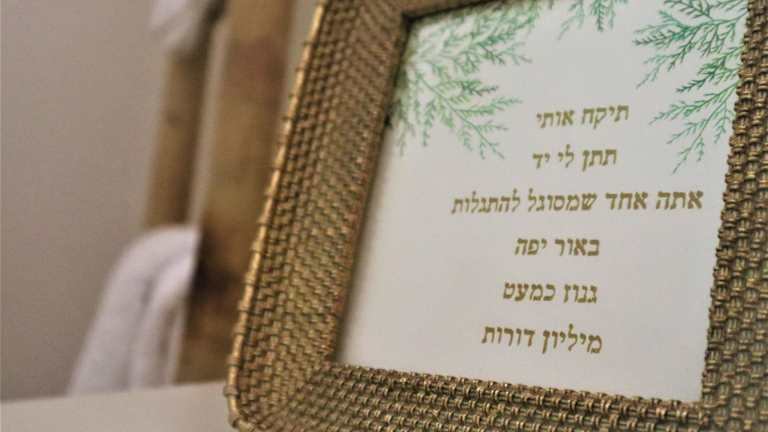 תיקח אותי
תתן לי יד
אתה אחד שמסוגל להתגלות
באור יפה
גנוז כמעט
מיליון דורות